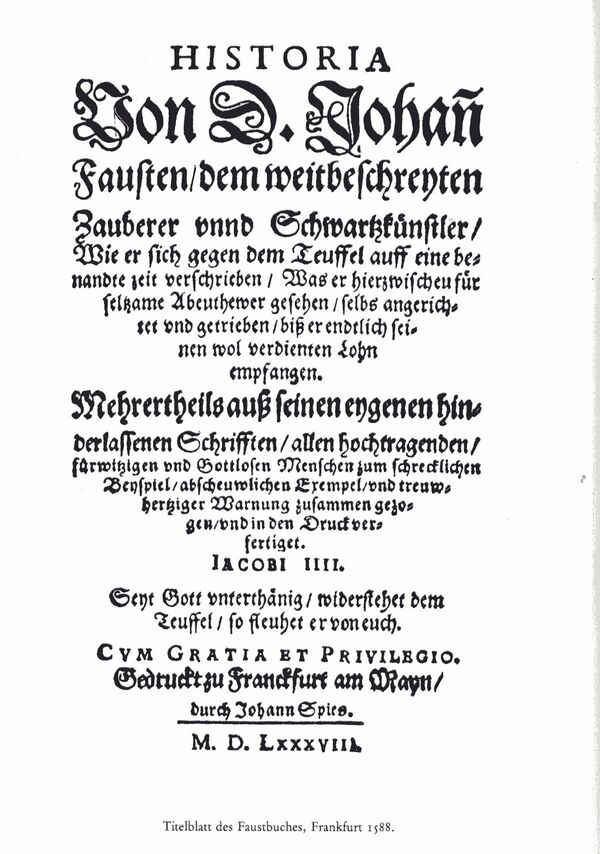 HISTORIA
Von D. Johañ
Fausten/dem weitbeschreyten
Zauberer vnnd Schwartzkünstler/
Wie er sich gegen dem Teuffel auff eine be-
nandte zeit verschrieben / Was er hierzwischen für
seltzame Abenthewer gesehen / selbs angerich-
tet vnd getrieben / biß er endtlich sei-
nen wol verdienten Lohn
empfangen.
Mehrertheils auß seinen eygenen hin-
derlassenen Schrifften / allen hochtragenden /
fürwitzigen vnd Gottlosen Menschen zum schrecklichen
Beyspiel / abscheuwlichen Exempel / vnd treuw-
hertziger Warnung zusammen gezo-
gen / vnd in den Druck ver-
fertiget.
IACOBI IIII.
Seyt Gott vnterthänig / widerstehet dem
Teuffel / so fleuhet er von euch.
CVM GRATIA ET PRIVILEGIO.
Gedruckt zu Franckfurt am Mayn /
durch Johann Spies.
M. D. LXXXVIII.
Titelblatt des Faustbuches, Frankfurt 1588.